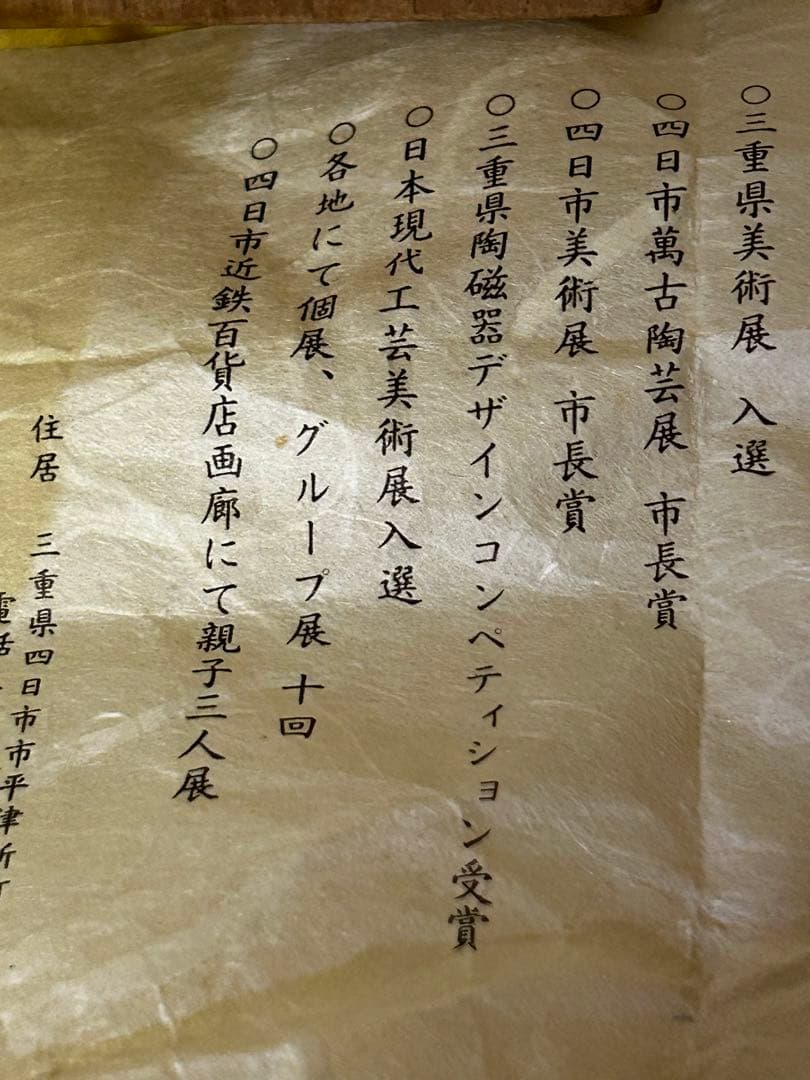 ○三重県美術展 入選
○四日市萬古陶芸展 市長賞
○四日市美術展 市長賞
○三重県陶磁器デザインコンペティション受賞
○日本現代工芸美術展入選
○各地にて個展、グループ展 十回
○四日市近鉄百貨店画廊にて親子三人展
住居 三重県四日市市平津新町
電話